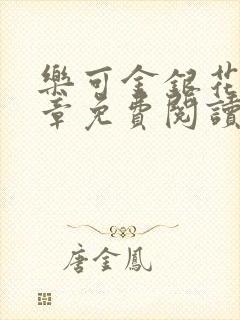 樂可金銀花
章免費閱讀
唐金鳳